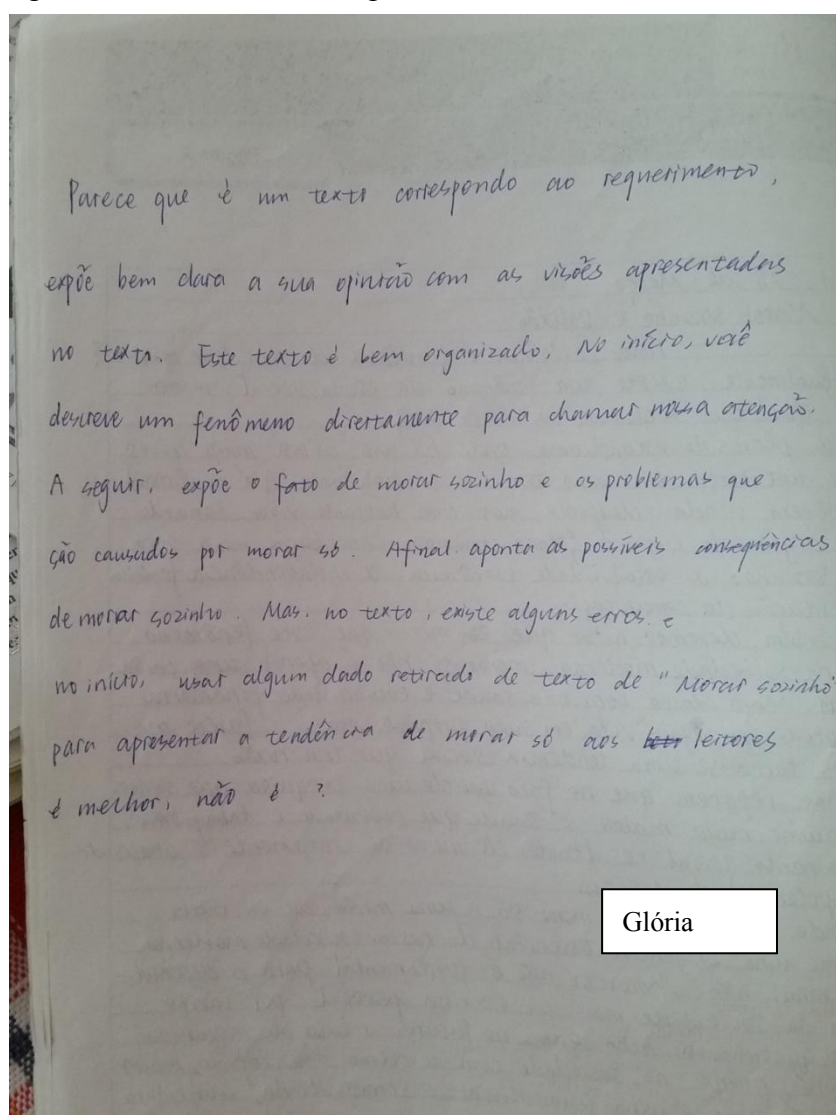 Parece que é um texto correspondo ao requerimento,
expõe bem clara a sua opinião com as visões apresentadas
no texto. Este texto é bem organizado, No início, você
descreve um fenômeno directamente para chamar nossa atenção.
A seguir, expõe o fato de morar sozinho e os problemas que
ção causados por morar só. Afinal. aponta as possíveis consequências
de morar sozinho. Mas. no texto, existe alguns erros. e
no início, usar algum dado retirado de texto de "Morar sozinho"
para apresentar a tendência de morar só aos leitores
é melhor, não é ?
Glória